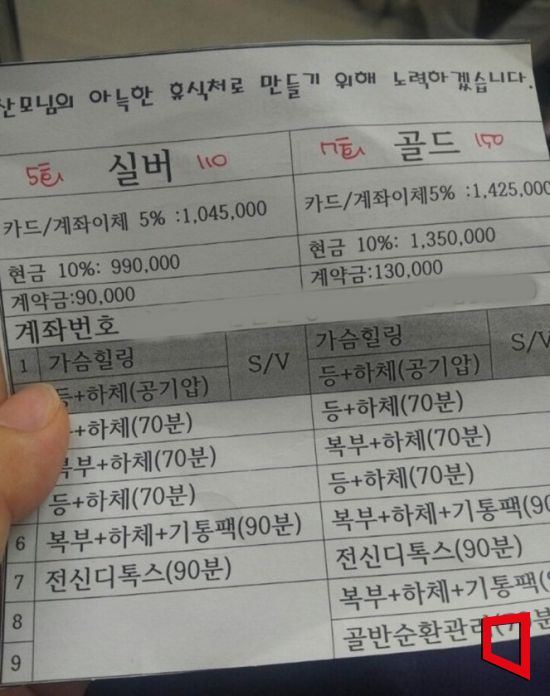 산모님의 아늑한 휴식처로 만들기 위해 노력하겠습니다.
5회 실버 110
7회 골드 150
카드/계좌이체 5% :1,045,000
카드/계좌이체5% :1,425,000
현금 10%: 990,000
현금 10%: 1,350,000
계약금:90,000
계약금:130,000
계좌번호
1 가슴힐링 S/V 가슴힐링 S/V
등+하체(공기압) 등+하체(공기압)
+하체(70분) 등+하체(70분)
복부+하체(70분) 복부+하체(70분)
등+하체(70분) 등+하체(70분)
6 복부+하체+기통팩(90분) 복부+하체+기통팩(90
7 전신디톡스(90분) 전신디톡스(90분)
8 복부+하체+기통팩(
9 골반순환관리